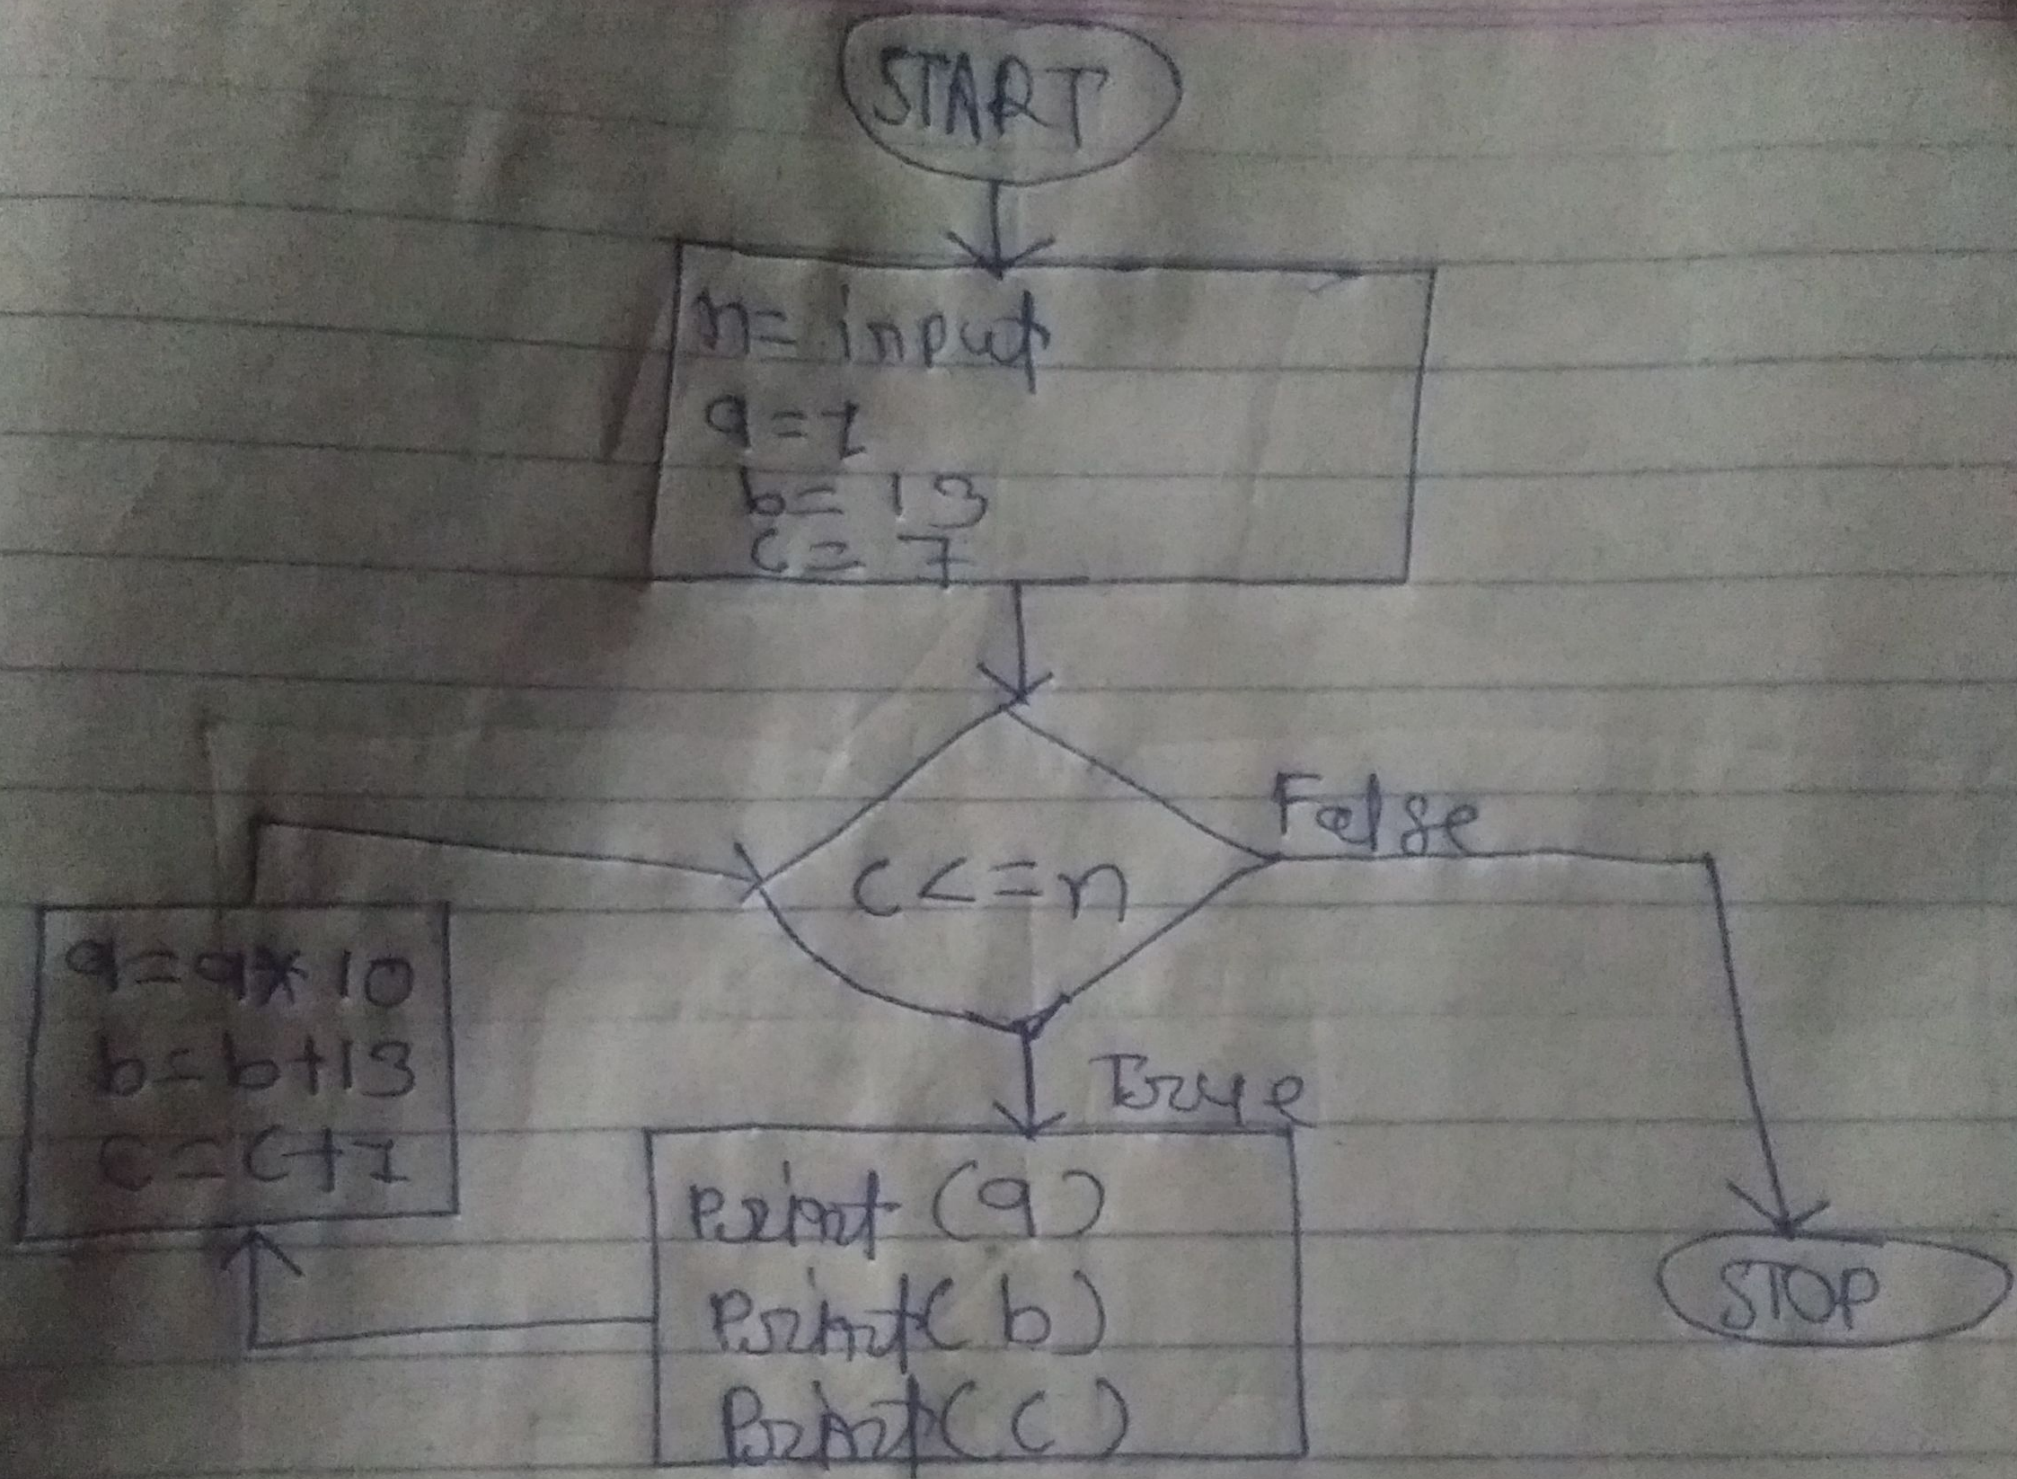 START
n= input
a=1
b= 13
c= 7
c<=n
False
a=a*10
b=b+13
c=c+1
True
Print (a)
Print( b)
Print( c )
STOP